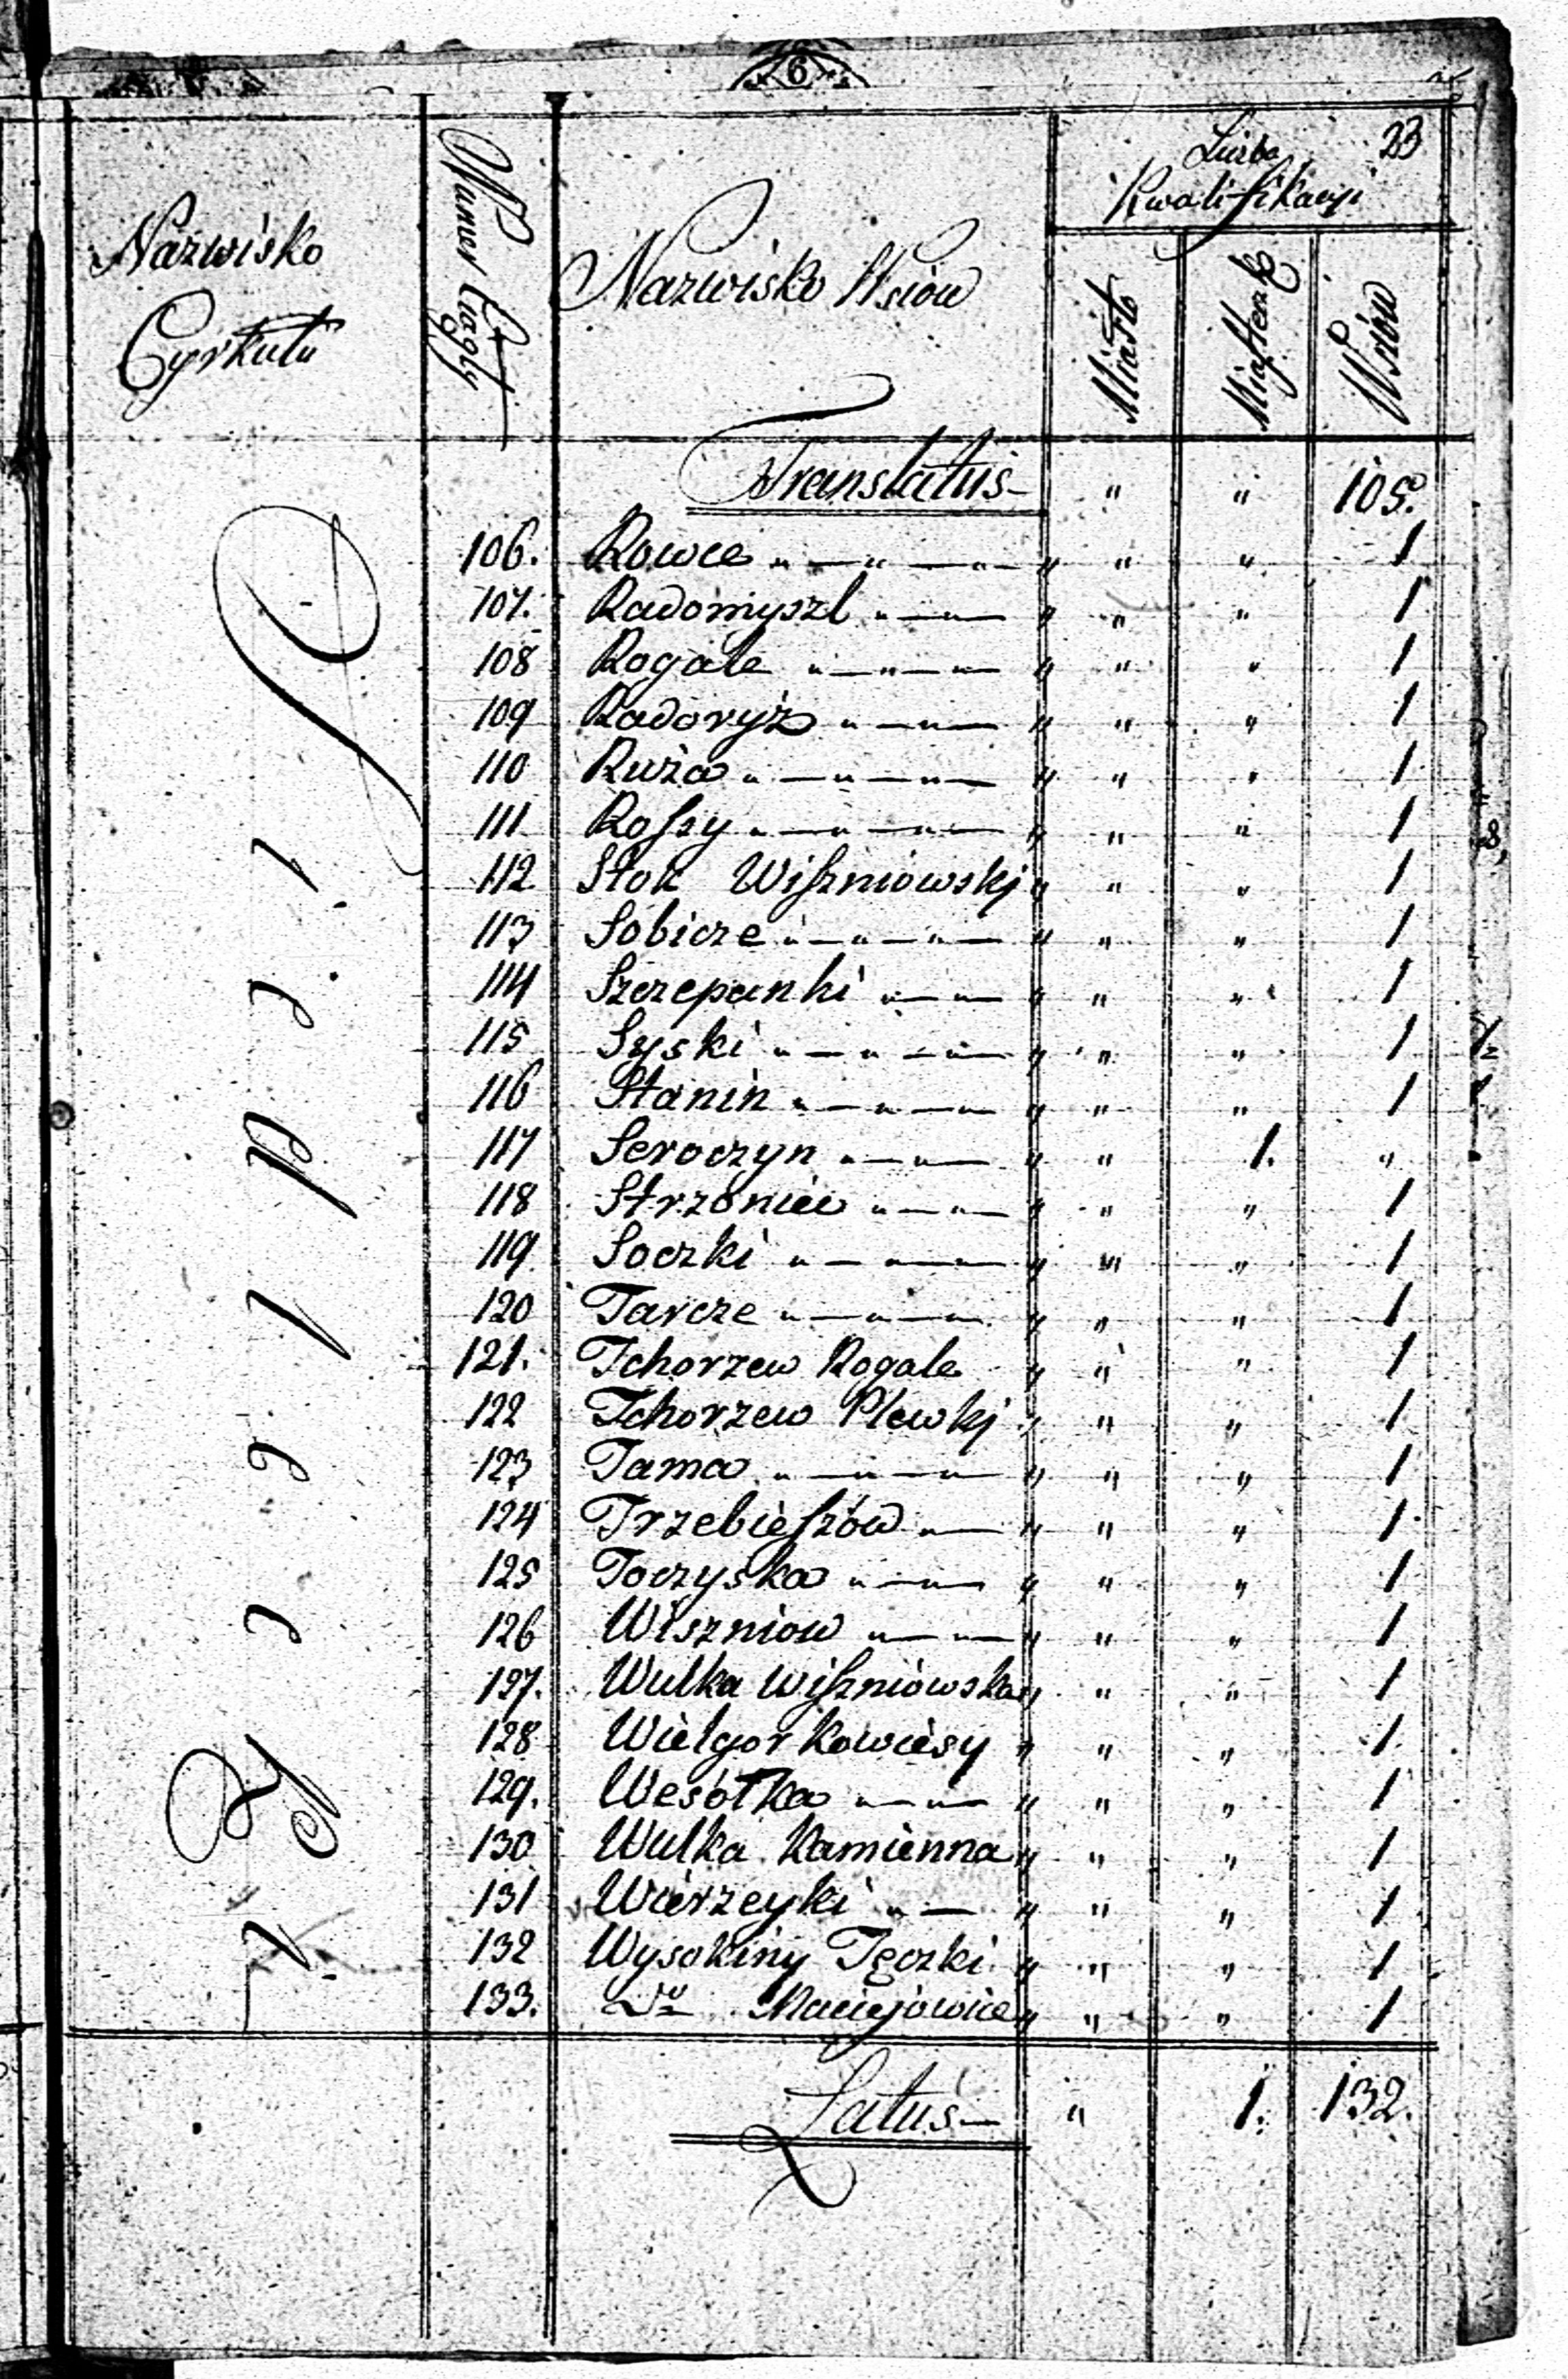 6
23
Nazwisko
Cyrkułu
Numer Ciągły
Nazwisko Wsiów
Liczba
Kwalifikacyi
Miasto
Miasteczk
Wsiów
Translatus — " " 105.
106. Rowce " — " — " — " " " 1
107. Radomyszl " — " — " " " 1
108 Rogale " — " — " — " " " 1
109 Radoryż " — " — " " " 1
110 Ruża " — " — " — " " " 1
111 Rossy " — " — " — " " " 1
112 Stok Wiszniowskj " " " 1
113 Sobicze " — " — " — " " " 1
114 Szczepanki " — " — " " " 1
115 Syski " — " — " — " " " 1
116 Stanin " — " — " — " " " 1
117 Seroczyn " — " — " " 1. "
118 Strzoniec " — " — " " " 1
119 Soczki " — " — " — " " " 1
120 Tarcze " — " — " — " " " 1
121. Tchorzew Rogale " " " 1
122 Tchorzew Plewkj " " " 1
123 Tama " — " — " — " " " 1
124 Trzebieszów " — " " " 1
125 Toczyska " — " — " " " 1
126 Wiszniow " — " — " " " 1
127. Wulka Wiszniowska " " " 1
128 Wielgor Kowiesy " " " 1
129. Wesołka " — " — " " " 1
130 Wulka Kamienna " " " 1
131 Wierzeyki " — " " " 1
132 Wysokiny Tęczki " " " 1
133. Do Maciejowice " " " 1
Latus — " 1. 132.